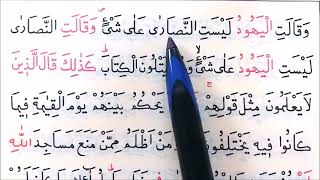 وَقَالَتِ الْيَهُودُ لَيْسَتِ النَّصَارٰى عَلٰى شَىْءٍ وَقَالَتِ النَّصَارٰى
لَيْسَتِ الْيَهُودُ عَلٰى شَىْءٍ يَتْلُونَ الْكِتَابَ كَذٰلِكَ قَالَ الَّذِينَ
لَا يَعْلَمُونَ مِثْلَ قَوْلِهِمْ يَحْكُمُ بَيْنَهُمْ يَوْمَ الْقِيٰمَةِ فِيمَا
كَانُوا فِيهِ يَخْتَلِفُونَ مَنْ اَظْلَمُ مِمَّنْ مَنَعَ مَسَاجِدَ اللّٰهِ